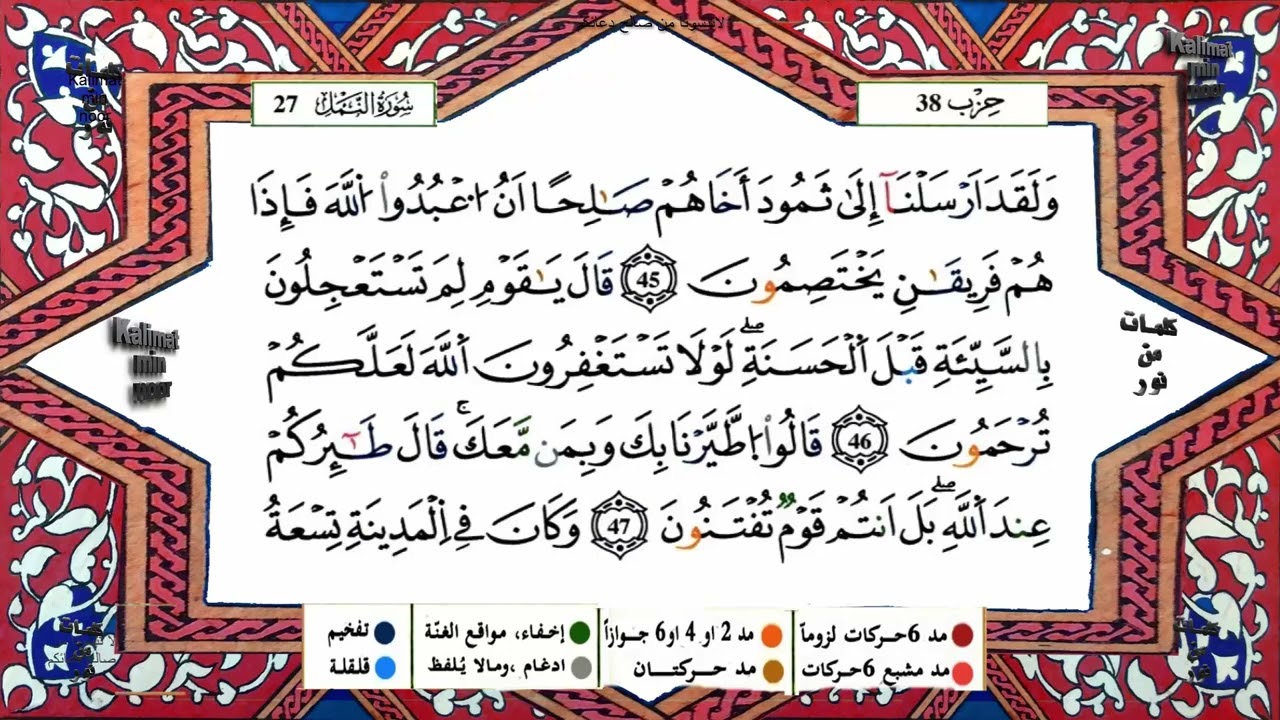 لاتنسونا من صالح دعائكم
حِزْب 38
سُورَةُ النَّمْلِ 27
وَلَقَدَ اَرْسَلْنَآ إِلَىٰ ثَمُودَ أَخَاهُمْ صَٰلِحًا اَنُ اُ۟عْبُدُوا۟ اُ۬للَّهَ فَإِذَا
هُمْ فَرِيقَٰنِ يَخْتَصِمُونَ 45 قَالَ يَٰقَوْمِ لِمَ تَسْتَعْجِلُونَ
بِالسَّيِّئَةِ قَبْلَ اَ۬لْحَسَنَةِۖ لَوْلَا تَسْتَغْفِرُونَ اَ۬للَّهَ لَعَلَّكُمْ
تُرْحَمُونَ 46 قَالُوا۟ اُ۪طَّيَّرْنَا بِكَ وَبِمَن مَّعَكَۚ قَالَ طَٰٓئِرُكُمْ
عِندَ اَ۬للَّهِۖ بَلَ اَنتُمْ قَوْمٌ تُفْتَنُونَ 47 وَكَانَ فِے اِ۬لْمَدِينَةِ تِسْعَةُ
Kalimat
min
noor
كلمات
من
نور
مد 6 حركات لزوماً
مد 2 او 4 او 6 جوازاً
إخفاء، مواقع الغنّة
تفخيم
مد مشبع 6 حركات
مد حركتان
ادغام ،ومالا يُلفظ
قلقلة